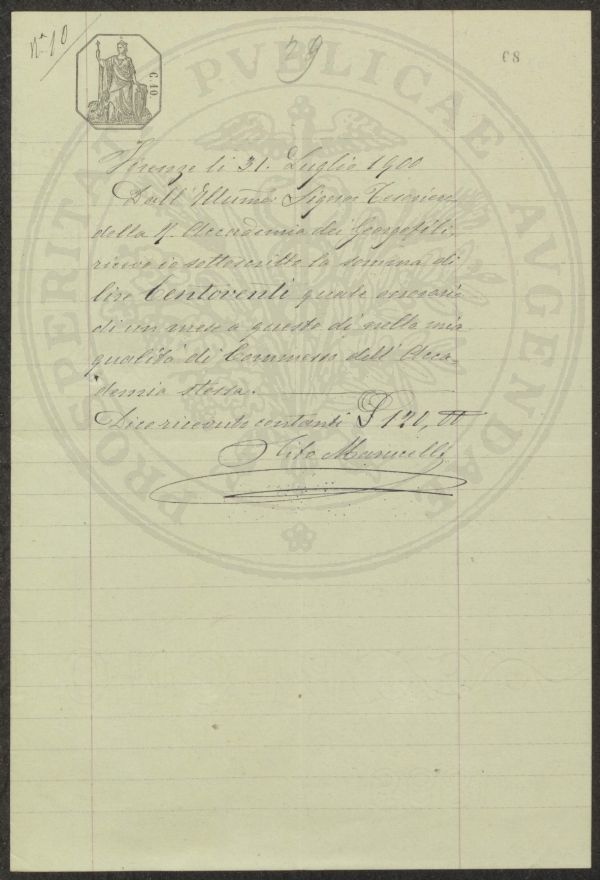 Nº 10
29
68
C. 10
PROSPERITATI PVBLICAE AVGENDAE
Firenze li 31. Luglio 1900
Dall' Illmo: Signor Tesoriere
della R. Accademia dei Georgofili,
ricevo io sottoscritto la somma di
lire Centoventi quale onorario
di un mese a questo dì nella mia
qualità di Commesso dell' Acca-
demia stessa.
Dico ricevuto contanti £ 120,
Tito